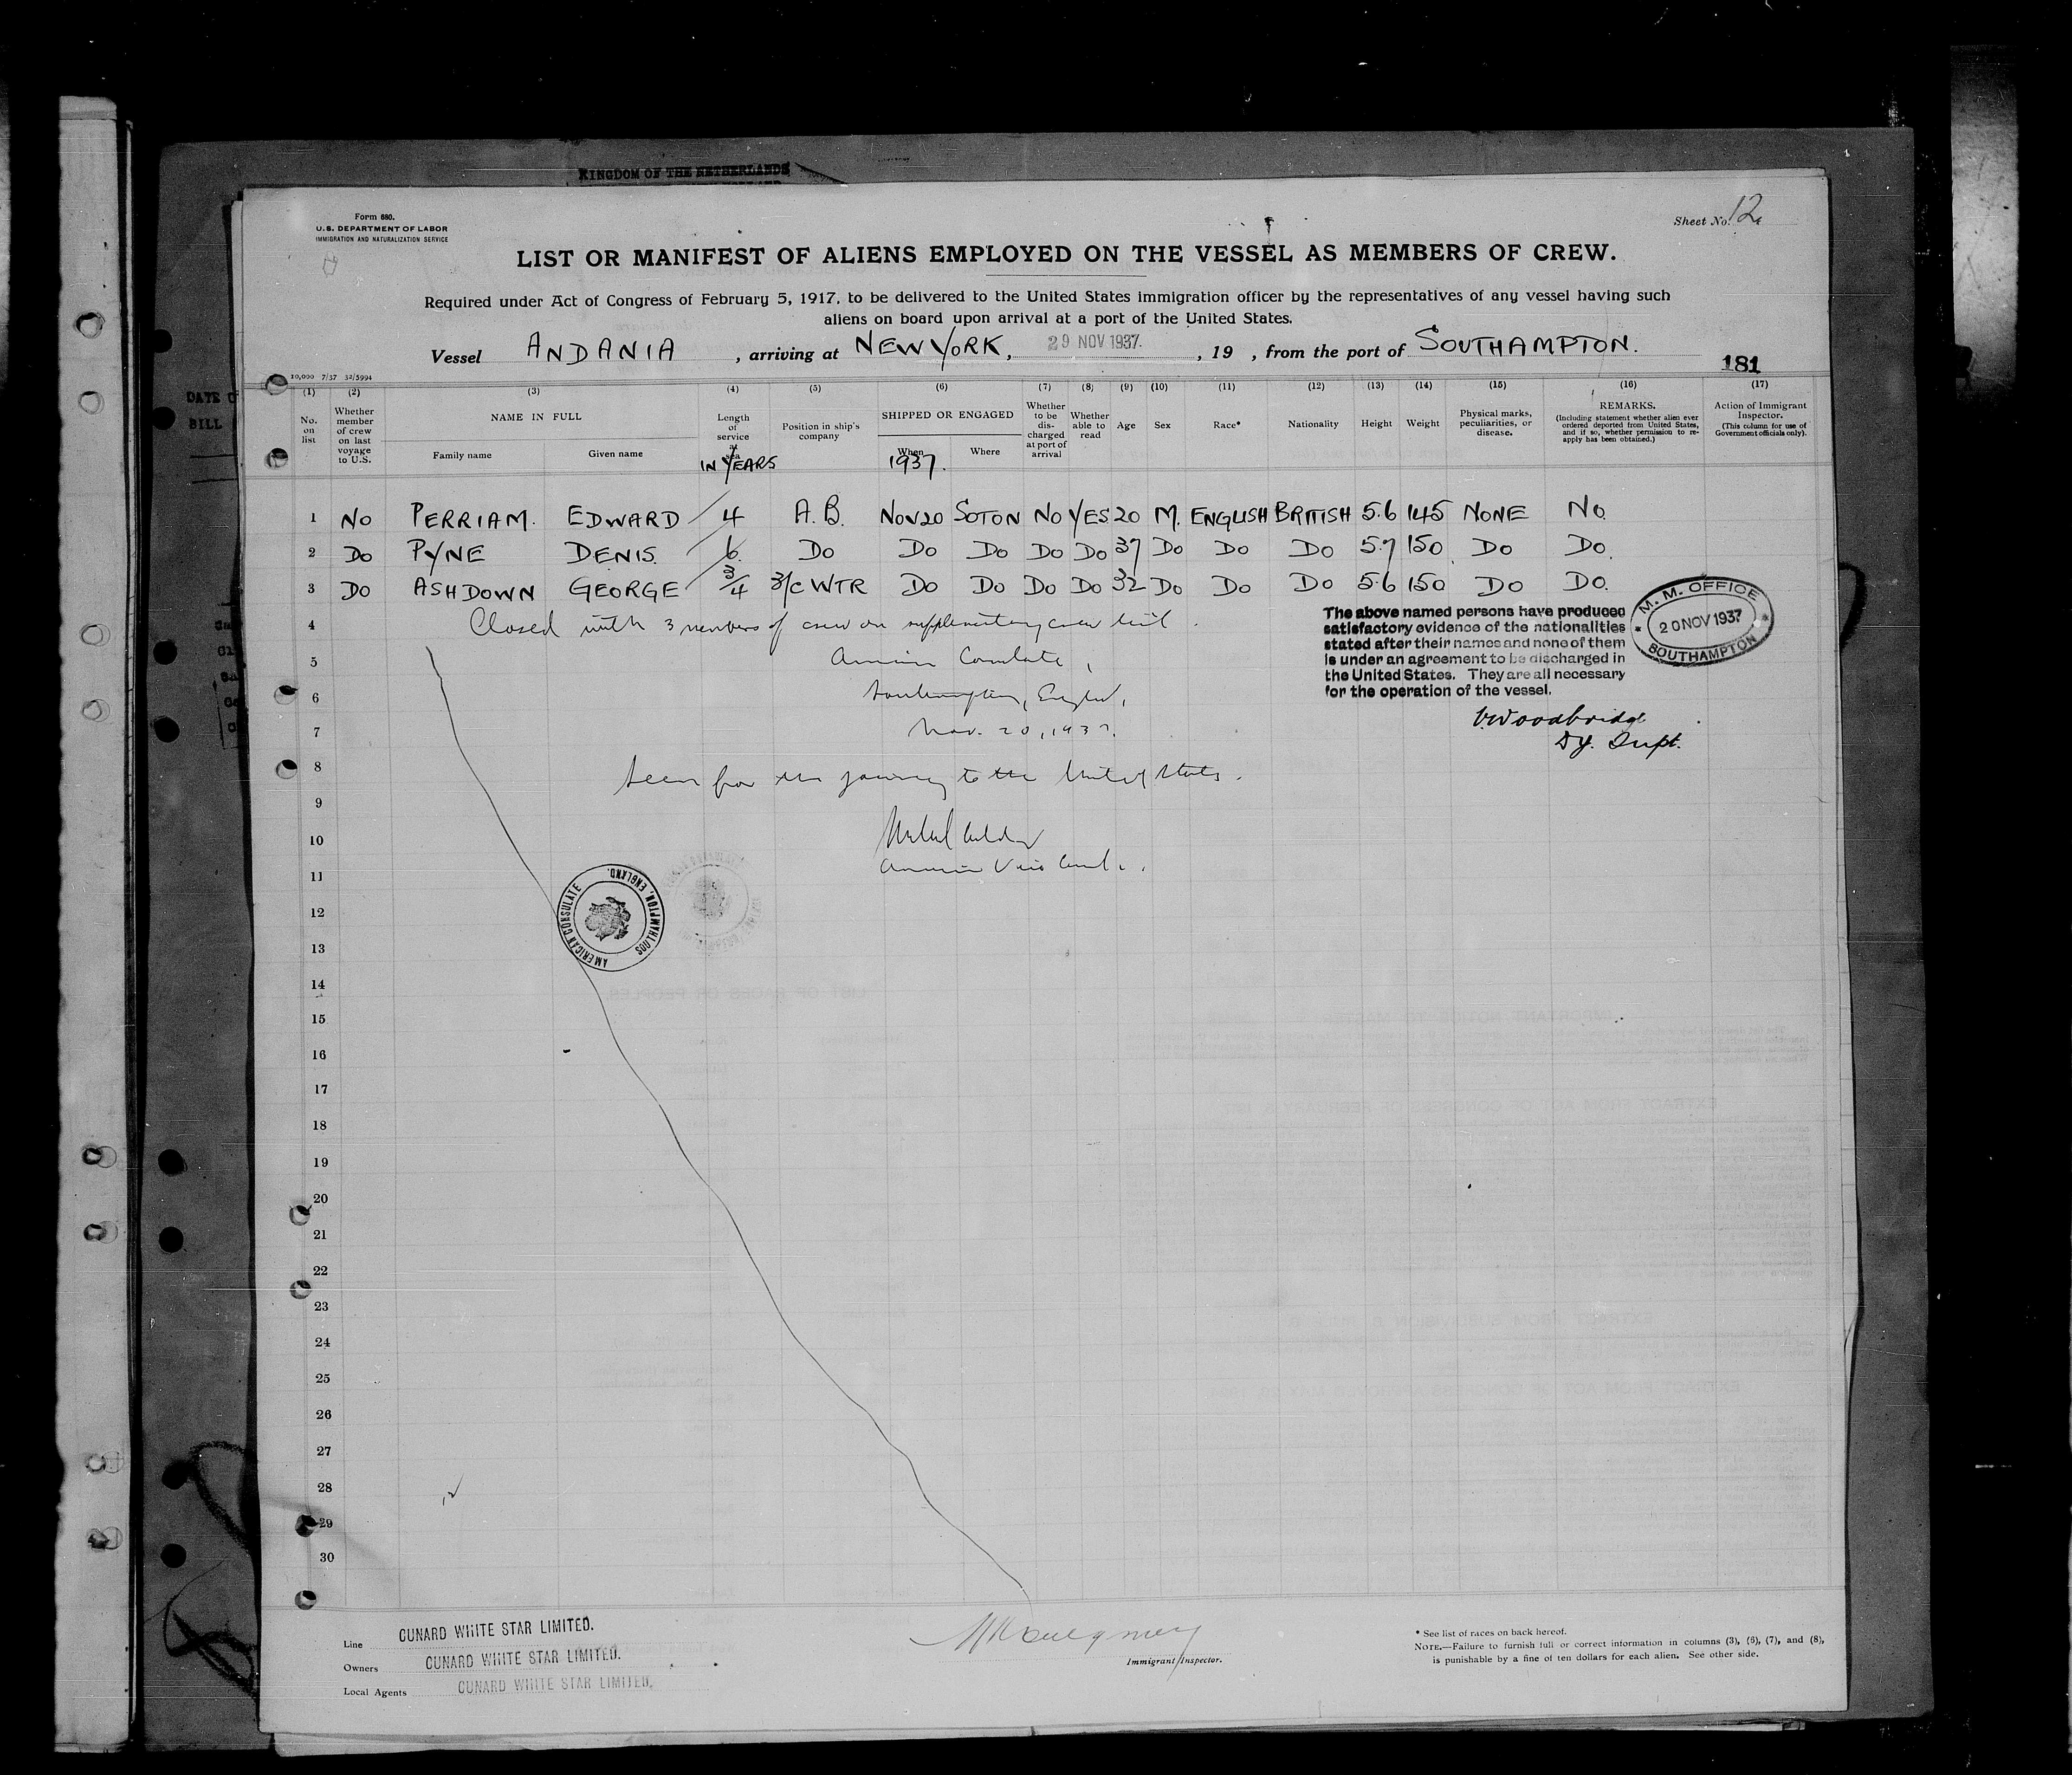 KINGDOM OF THE NETHERLANDS
Form 680.
U. S. DEPARTMENT OF LABOR
IMMIGRATION AND NATURALIZATION SERVICE
Sheet No. 12
LIST OR MANIFEST OF ALIENS EMPLOYED ON THE VESSEL AS MEMBERS OF CREW.
Required under Act of Congress of February 5, 1917, to be delivered to the United States immigration officer by the representatives of any vessel having such
aliens on board upon arrival at a port of the United States.
Vessel ANDANIA, arriving at NEW YORK, 29 NOV 1937., 19 , from the port of SOUTHAMPTON.
181
10,000 7/37 32/5994
DATE
BILL
(1) (2) (3) (4) (5) (6) (7) (8) (9) (10) (11) (12) (13) (14) (15) (16) (17)
No. on list
Whether member of crew on last voyage to U.S.
NAME IN FULL
Family name
Given name
Length of service at sea
IN YEARS
Position in ship's company
SHIPPED OR ENGAGED
When
1937.
Where
Whether to be discharged at port of arrival
Whether able to read
Age
Sex
Race*
Nationality
Height
Weight
Physical marks, peculiarities, or disease.
REMARKS.
(Including statement whether alien ever ordered deported from United States, and if so, whether permission to re-apply has been obtained.)
Action of Immigrant Inspector.
(This column for use of Government officials only).
1 NO PERRIAM. EDWARD 4 A.B. NOV 20 SOTON NO YES 20 M. ENGLISH BRITISH 5.6 145 NONE NO.
2 DO PYNE DENIS. 6 DO DO DO DO DO 37 DO DO DO 5.7 150 DO DO.
3 DO ASHDOWN GEORGE 3/4 3/C WTR DO DO DO DO 32 DO DO DO 5.6 150 DO DO.
4 Closed with 3 members of crew on supplementary crew list.
The above named persons have produced
satisfactory evidence of the nationalities
stated after their names and none of them
is under an agreement to be discharged in
the United States. They are all necessary
for the operation of the vessel.
M. M. OFFICE
20 NOV 1937
SOUTHAMPTON
Woodbridge
Dy. Supt.
5 American Consulate,
6 Southampton, England,
7 Nov. 20, 1937.
8 Seen for the journey to the United States.
9
10
11 American Vice Consul.
AMERICAN CONSULATE
SOUTHAMPTON, ENGLAND.
12
13
14
15
16
17
18
19
20
21
22
23
24
25
26
27
28
29
30
Line CUNARD WHITE STAR LIMITED.
Owners CUNARD WHITE STAR LIMITED.
Local Agents CUNARD WHITE STAR LIMITED.
Immigrant Inspector.
* See list of races on back hereof.
NOTE.—Failure to furnish full or correct information in columns (3), (6), (7), and (8),
is punishable by a fine of ten dollars for each alien. See other side.